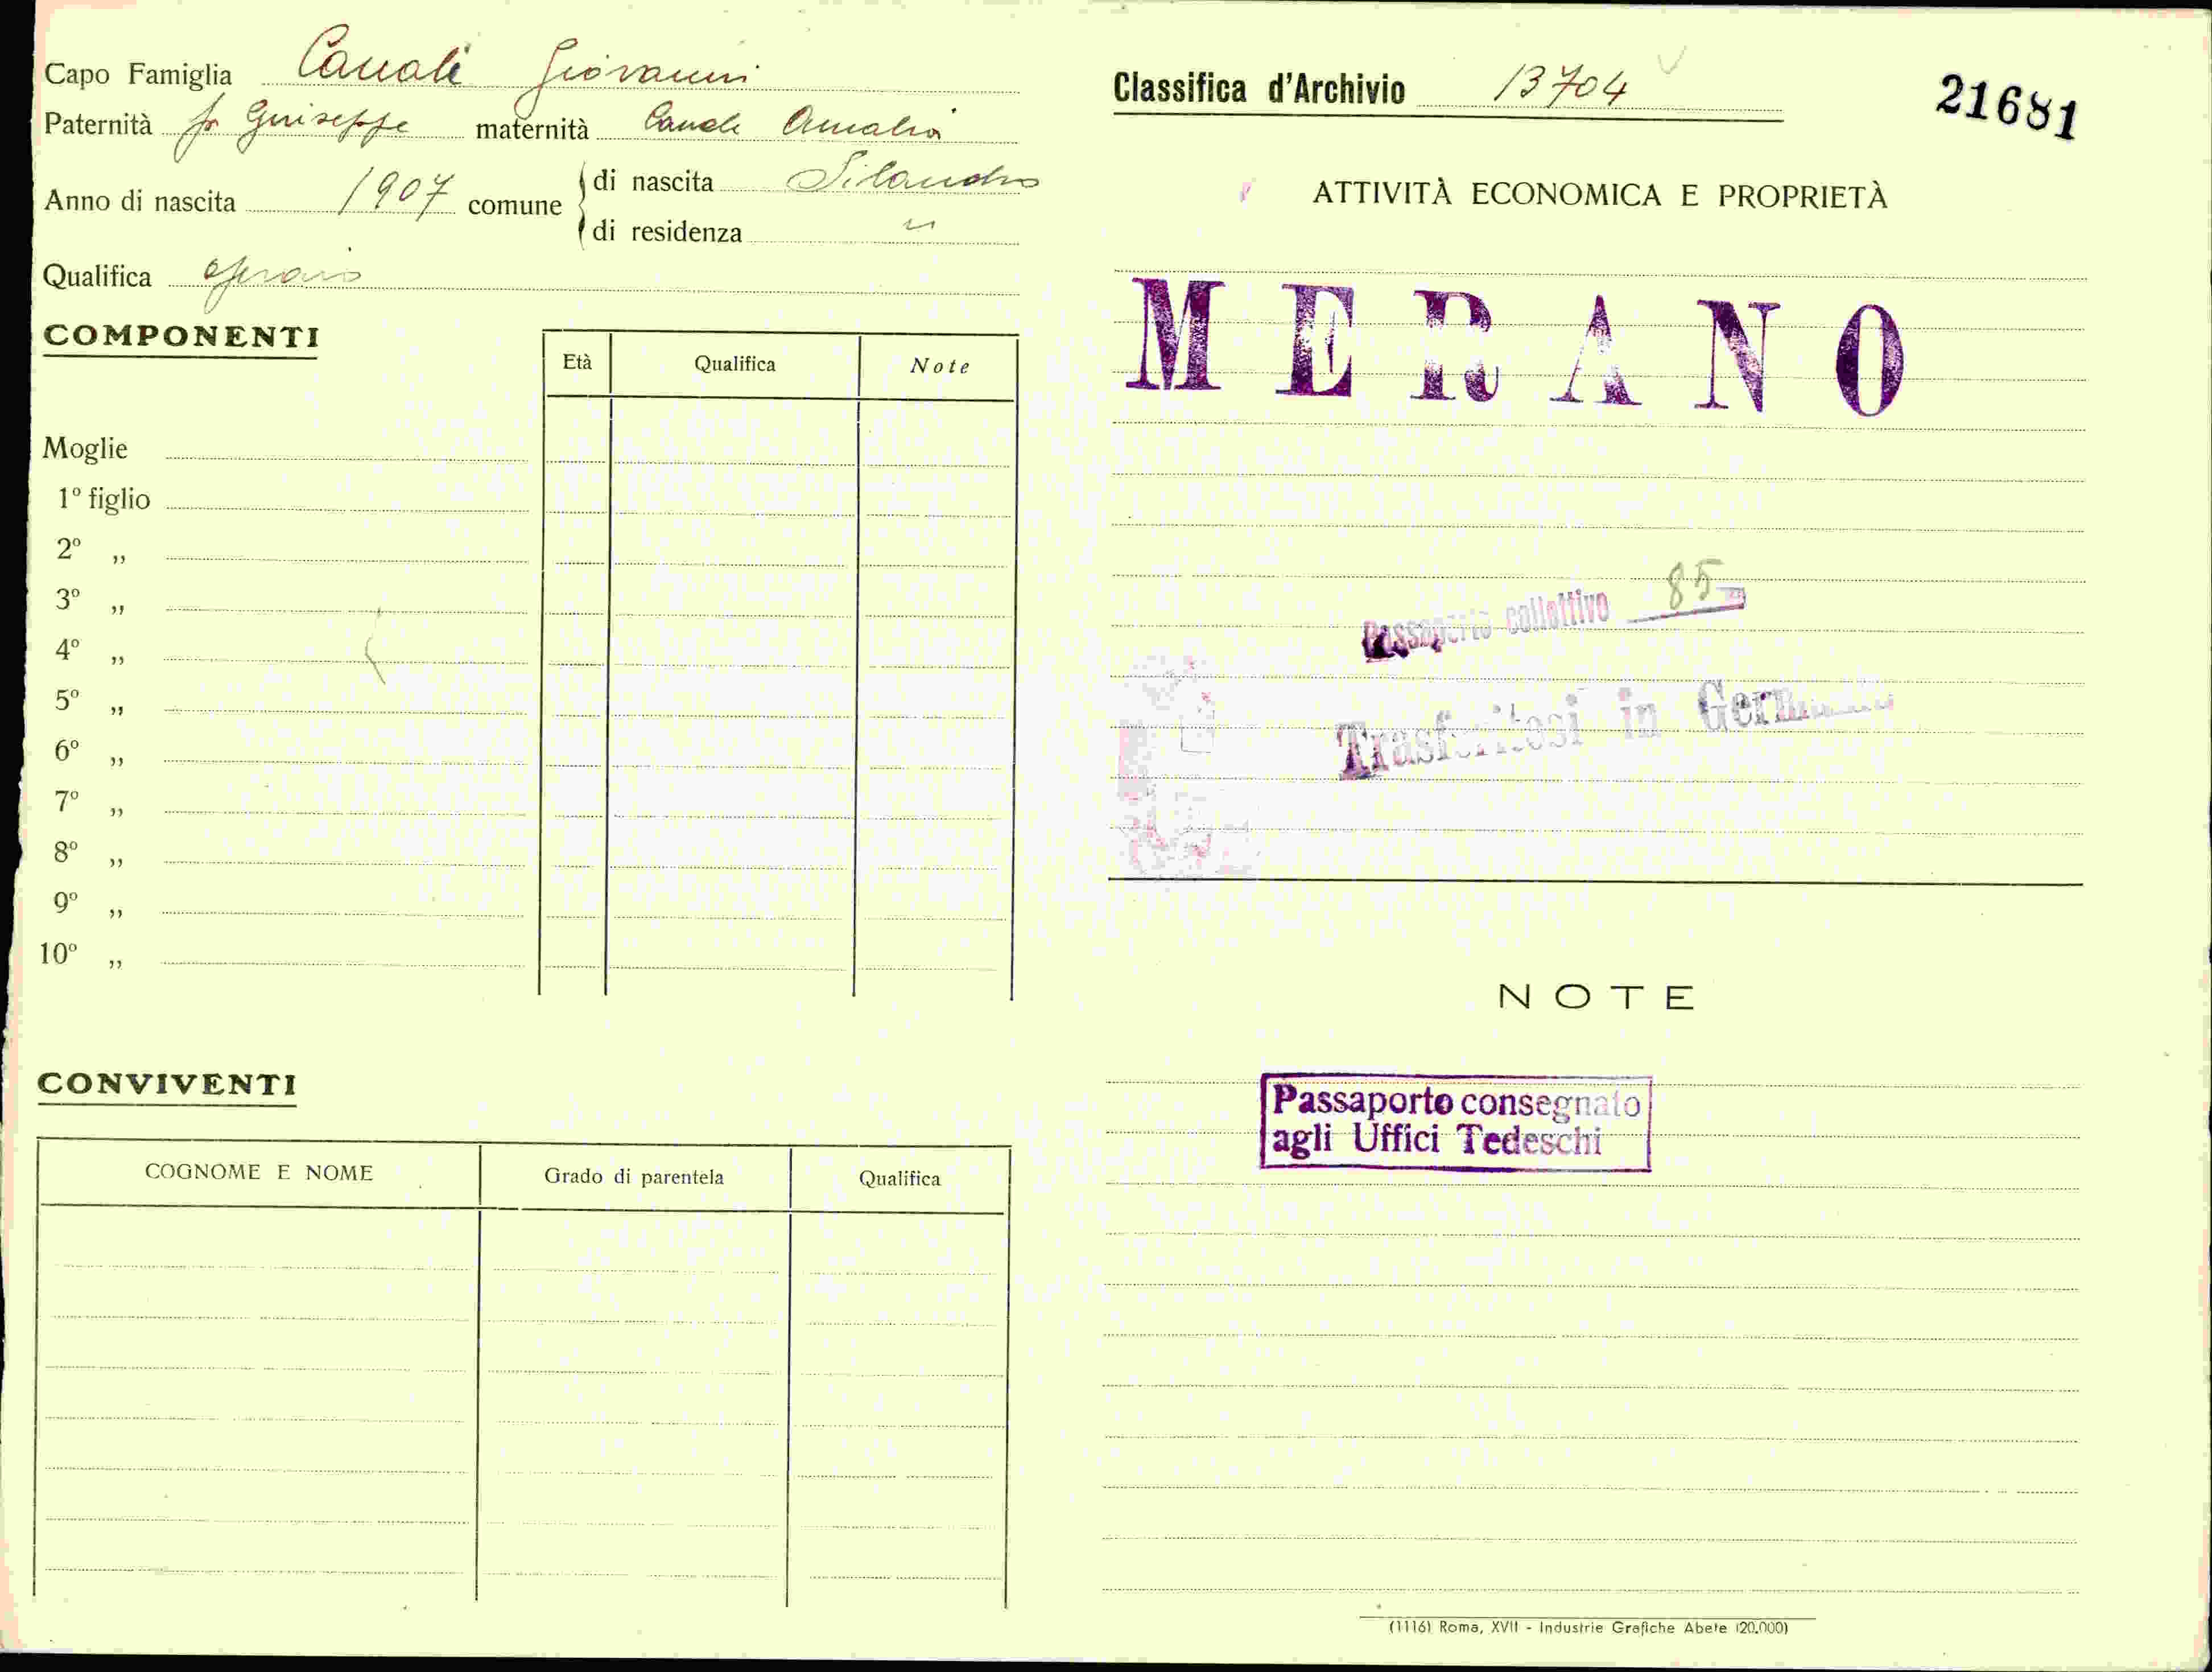 Capo Famiglia Canali Giovanni
Paternità fu Giuseppe maternità Canale Amalia
Anno di nascita 1907 comune di nascita Silandro
di residenza "
Qualifica operaio
COMPONENTI
Età Qualifica Note
Moglie
1º figlio
2º „
3º „
4º „
5º „
6º „
7º „
8º „
9º „
10º „
CONVIVENTI
COGNOME E NOME Grado di parentela Qualifica
Classifica d'Archivio 13704
21681
ATTIVITÀ ECONOMICA E PROPRIETÀ
MERANO
Passaporto collettivo 85
Trasferitosi in Germania
NOTE
Passaporto consegnato
agli Uffici Tedeschi
(1116) Roma, XVII - Industrie Grafiche Abete (20.000)